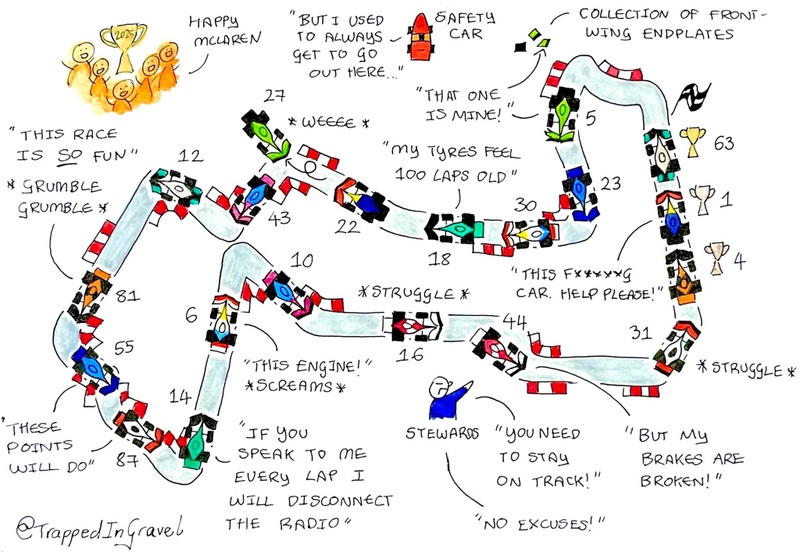 HAPPY
MCLAREN
2025
"BUT I USED
TO ALWAYS
GET TO GO
OUT HERE..."
SAFETY
CAR
COLLECTION OF FRONT-
WING ENDPLATES
"THAT ONE
IS MINE!"
5
63
1
4
"THIS RACE
IS SO FUN"
12
27
*WEEEE*
43
22
"MY TYRES FEEL
100 LAPS OLD"
18
30
23
"THIS F*****G
CAR. HELP PLEASE!"
*GRUMBLE
GRUMBLE*
81
10
*STRUGGLE*
6
16
44
31
*STRUGGLE*
55
"THIS ENGINE!"
*SCREAMS*
14
"THESE
POINTS
WILL DO"
87
"IF YOU
SPEAK TO ME
EVERY LAP I
WILL DISCONNECT
THE RADIO"
STEWARDS
"YOU NEED
TO STAY
ON TRACK!"
"BUT MY
BRAKES ARE
BROKEN!"
"NO EXCUSES!"
@TrappedInGravel